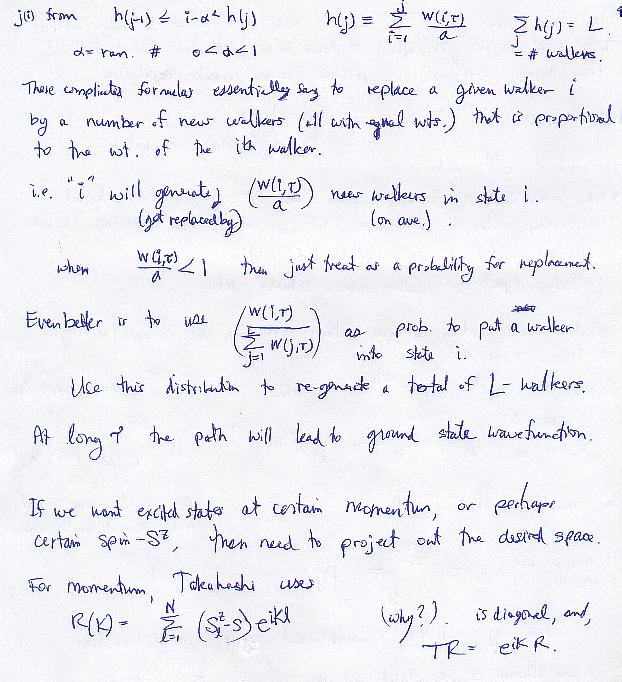 j(i) from h(j-1) ≤ i-α < h(j) h(j) ≡ Σ_{i=1}^{j} W(i,τ)/a Σ_j h(j) = L
α = ran. # 0<α<1 = # walkers.
These complicated formulas essentially say to replace a given walker i
by a number of new walkers (all with equal wts.) that is proportional
to the wt. of the ith walker.
i.e. "i" will generate (W(i,τ)/a) new walkers in state i.
(get replaced by) (on ave.).
when W(i,τ)/a < 1 then just treat as a probability for replacement.
Even better is to use (W(i,τ)/Σ_{j=1}^{L} W(j,τ)) as prob. to put a walker
into state i.
Use this distribution to re-generate a total of L-walkers.
At long τ the path will lead to ground state wavefunction.
If we want excited states at certain momentum, or perhaps
certain spin-S^z, then need to project out the desired space.
For momentum, Takahashi uses
R(K) = Σ_{l=1}^{N} (S_l^z-S) e^{iKl} (why?). is diagonal, and,
TR = e^{iK} R.